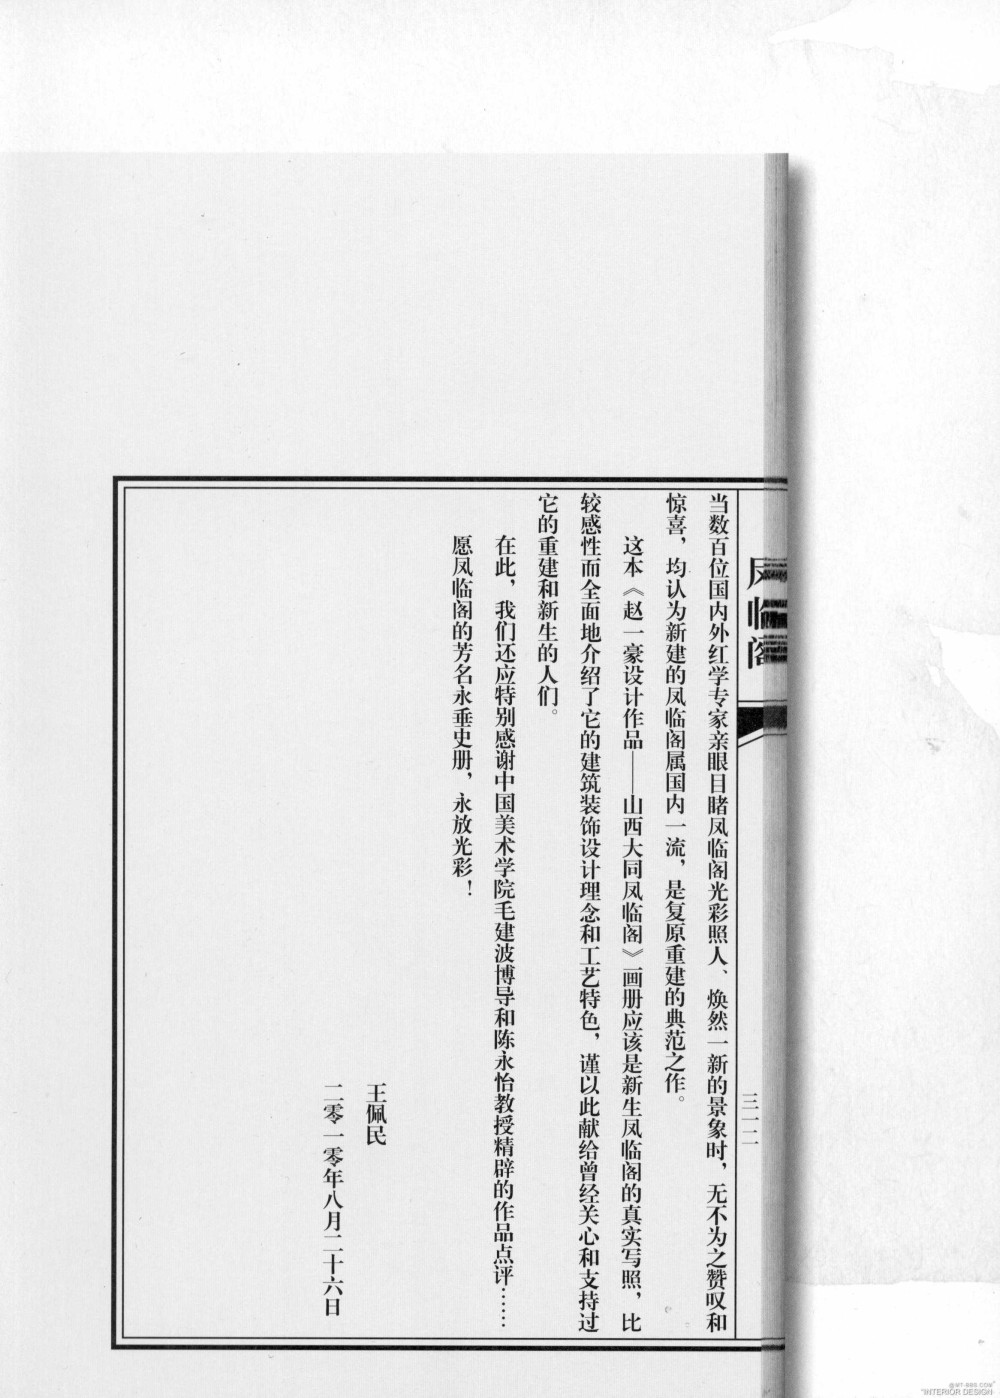 凤临阁
三一二
当数百位国内外红学专家亲眼目睹凤临阁光彩照人、焕然一新的景象时，无不为之赞叹和
惊喜，均认为新建的凤临阁属国内一流，是复原重建的典范之作。
这本《赵一豪设计作品——山西大同凤临阁》画册应该是新生凤临阁的真实写照，比
较感性而全面地介绍了它的建筑装饰设计理念和工艺特色，谨以此献给曾经关心和支持过
它的重建和新生的人们。
在此，我们还应特别感谢中国美术学院毛建波博导和陈永怡教授精辟的作品点评……
愿凤临阁的芳名永垂史册，永放光彩！
王佩民
二零一零年八月二十六日
@MT-BBS.COM
"INTERIOR DESIGN"